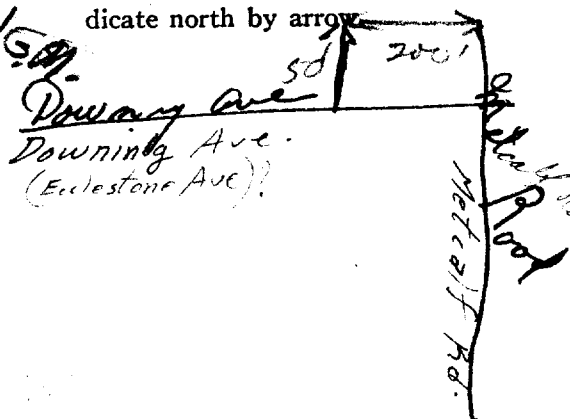 dicate north by arrow
50'
200'
Downing Ave
Downing Ave.
(Ecclestone Ave)?
Metcalf Road
Metcalf Rd.